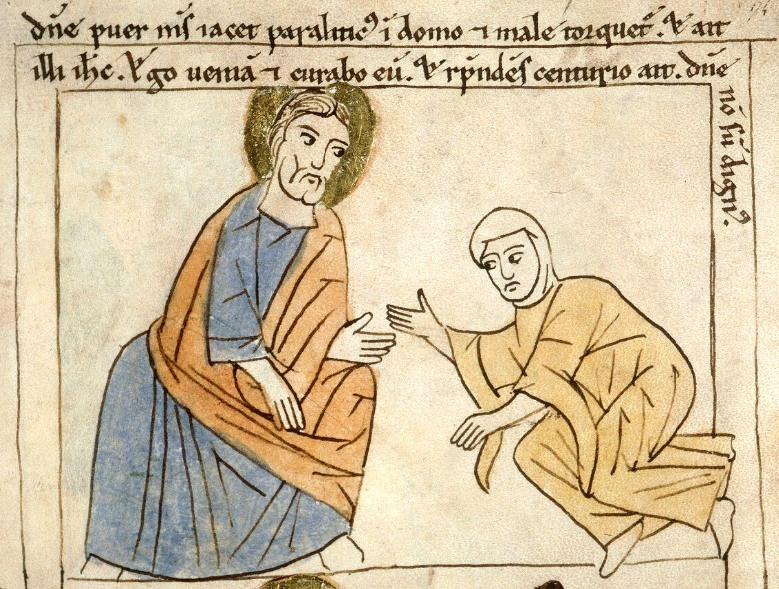 dn̄e puer m̄s iacet paralitic᷒ ī domo ⁊ male torquet᷑. & ait
illi ih̄c. ego ueniā ⁊ curabo eū. & rn̄dēs centurio ait. dn̄e
nō sū dign᷒.